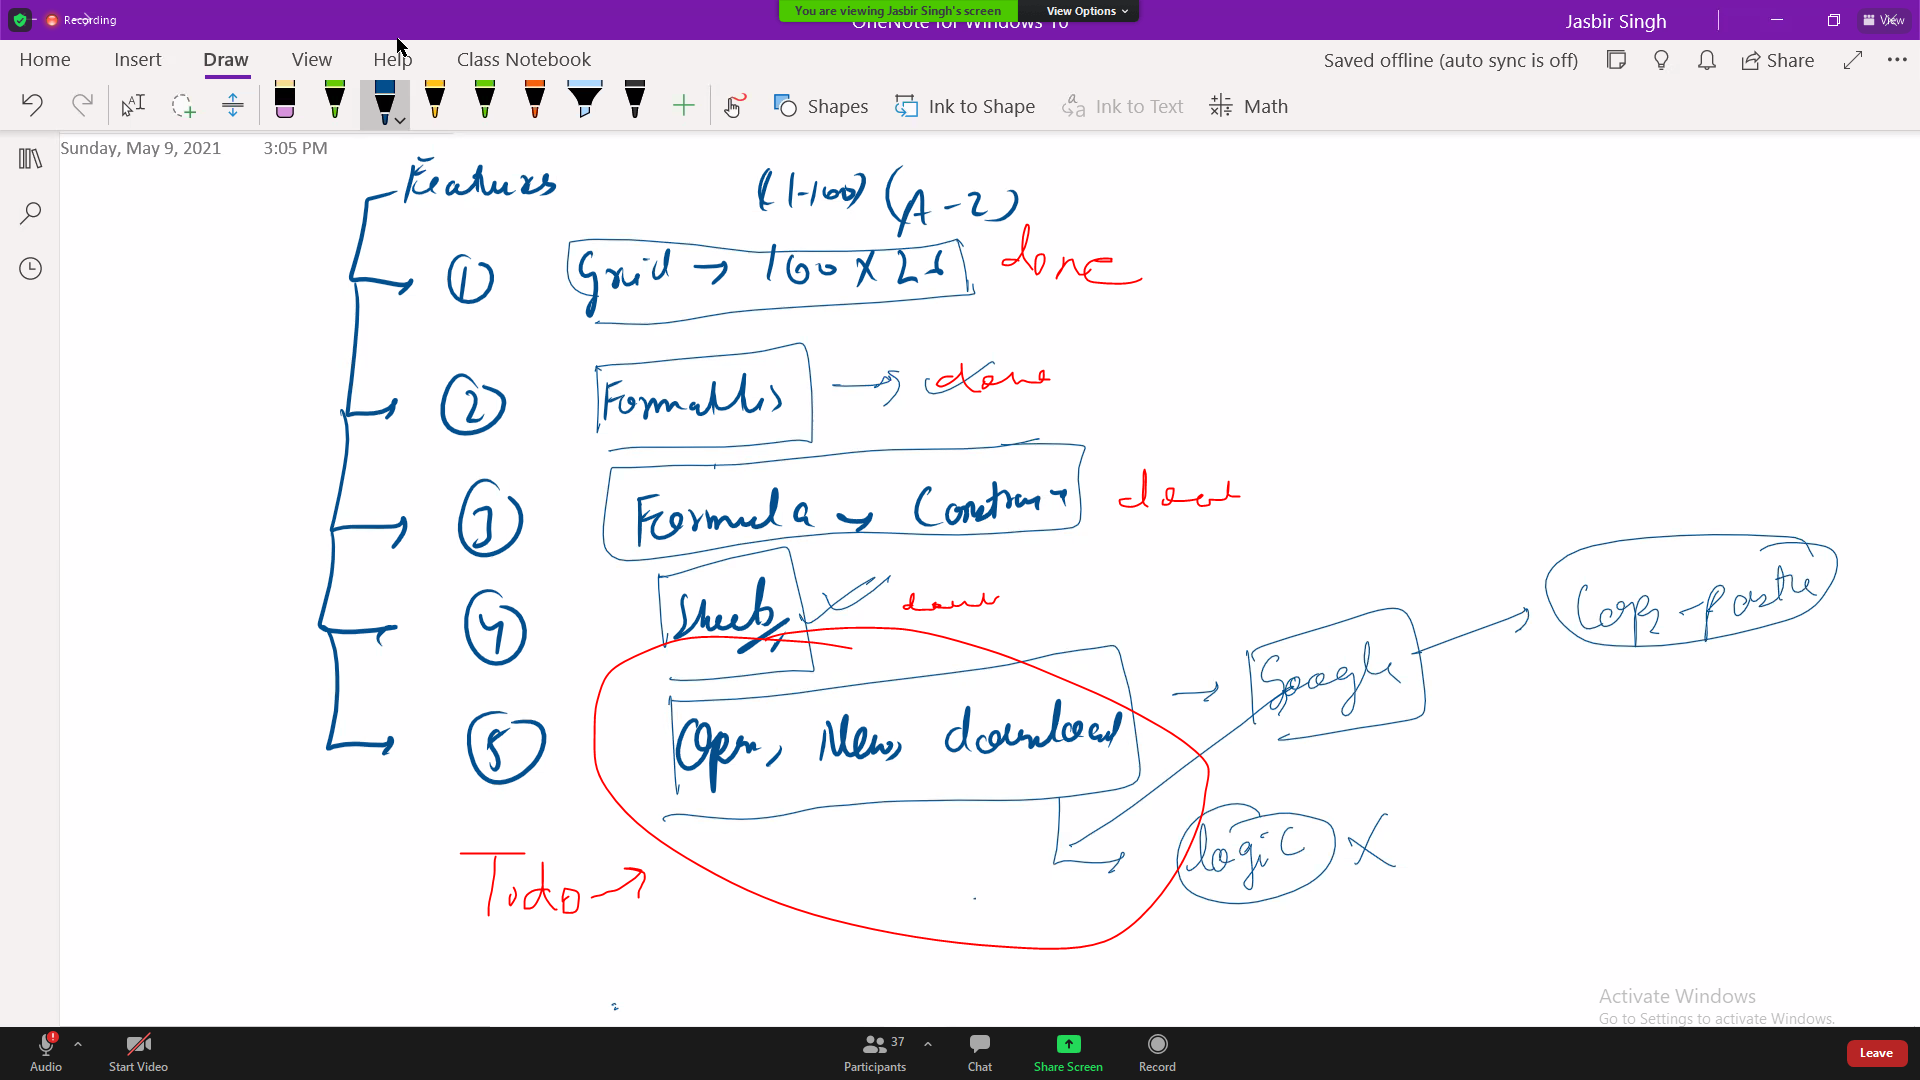 Recording
You are viewing Jasbir Singh's screen
View Options
OneNote for Windows 10
Jasbir Singh
View
Home Insert Draw View Help Class Notebook
Saved offline (auto sync is off)
Share
Shapes
Ink to Shape
Ink to Text
Math
Sunday, May 9, 2021 3:05 PM
Features
(1-100) (A-Z)
1 Grid → 100 X 26 done
2 → done
3 Formula →
4 Sheets done
5 Open, New, download → Google → Copy-paste
logic X
Todo →
Activate Windows
Go to Settings to activate Windows.
Audio
Start Video
37
Participants
Chat
Share Screen
Record
Leave